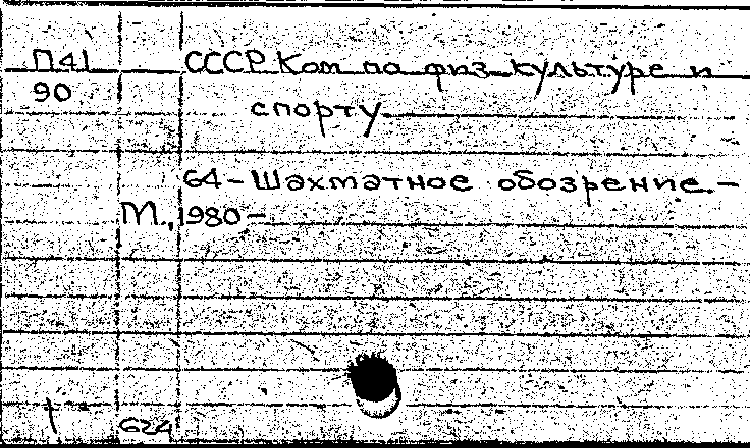 П41 СССР Ком по физ культуре и
90 спорту
64 - Шахматное обозрение. -
М., 1980 -
624